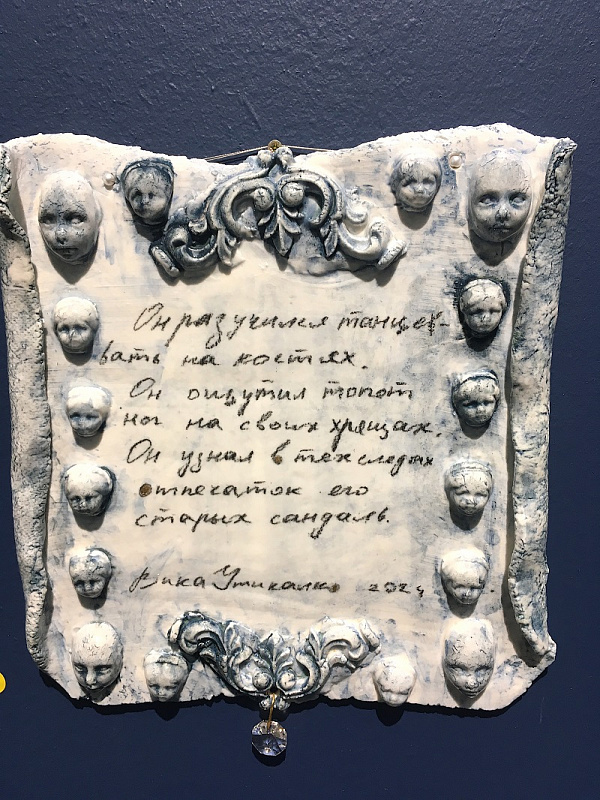 Он разучился танцев-
вать на костях.
Он ощутил топот
ног на своих хрящах.
Он узнал в тех следах
отпечаток его
старых сандаль.
Вика 2024